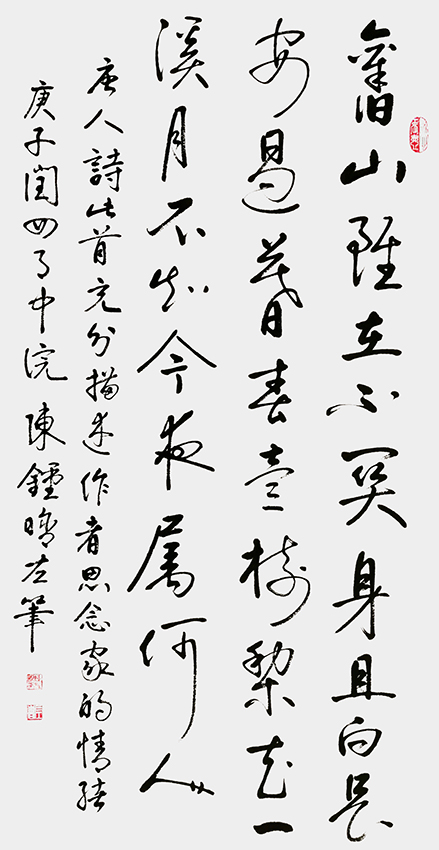 舊山雖在不關身且向長
安過暮春壹樹梨花一
溪月不知今夜屬何人
唐人詩此首充分描述作者思念家的情緒
庚子閏四月中浣 陳左筆